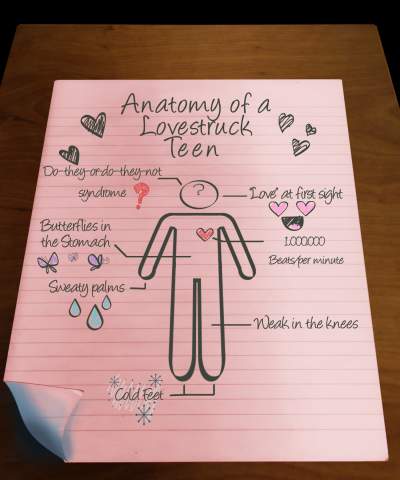 Anatomy of a
Lovestruck
Teen
Do-they-or-do-they-not
syndrome ?
?
"Love" at first sight
Butterflies in
the Stomach
1,000,000
Beats/per minute
Sweaty palms
Weak in the knees
Cold Feet